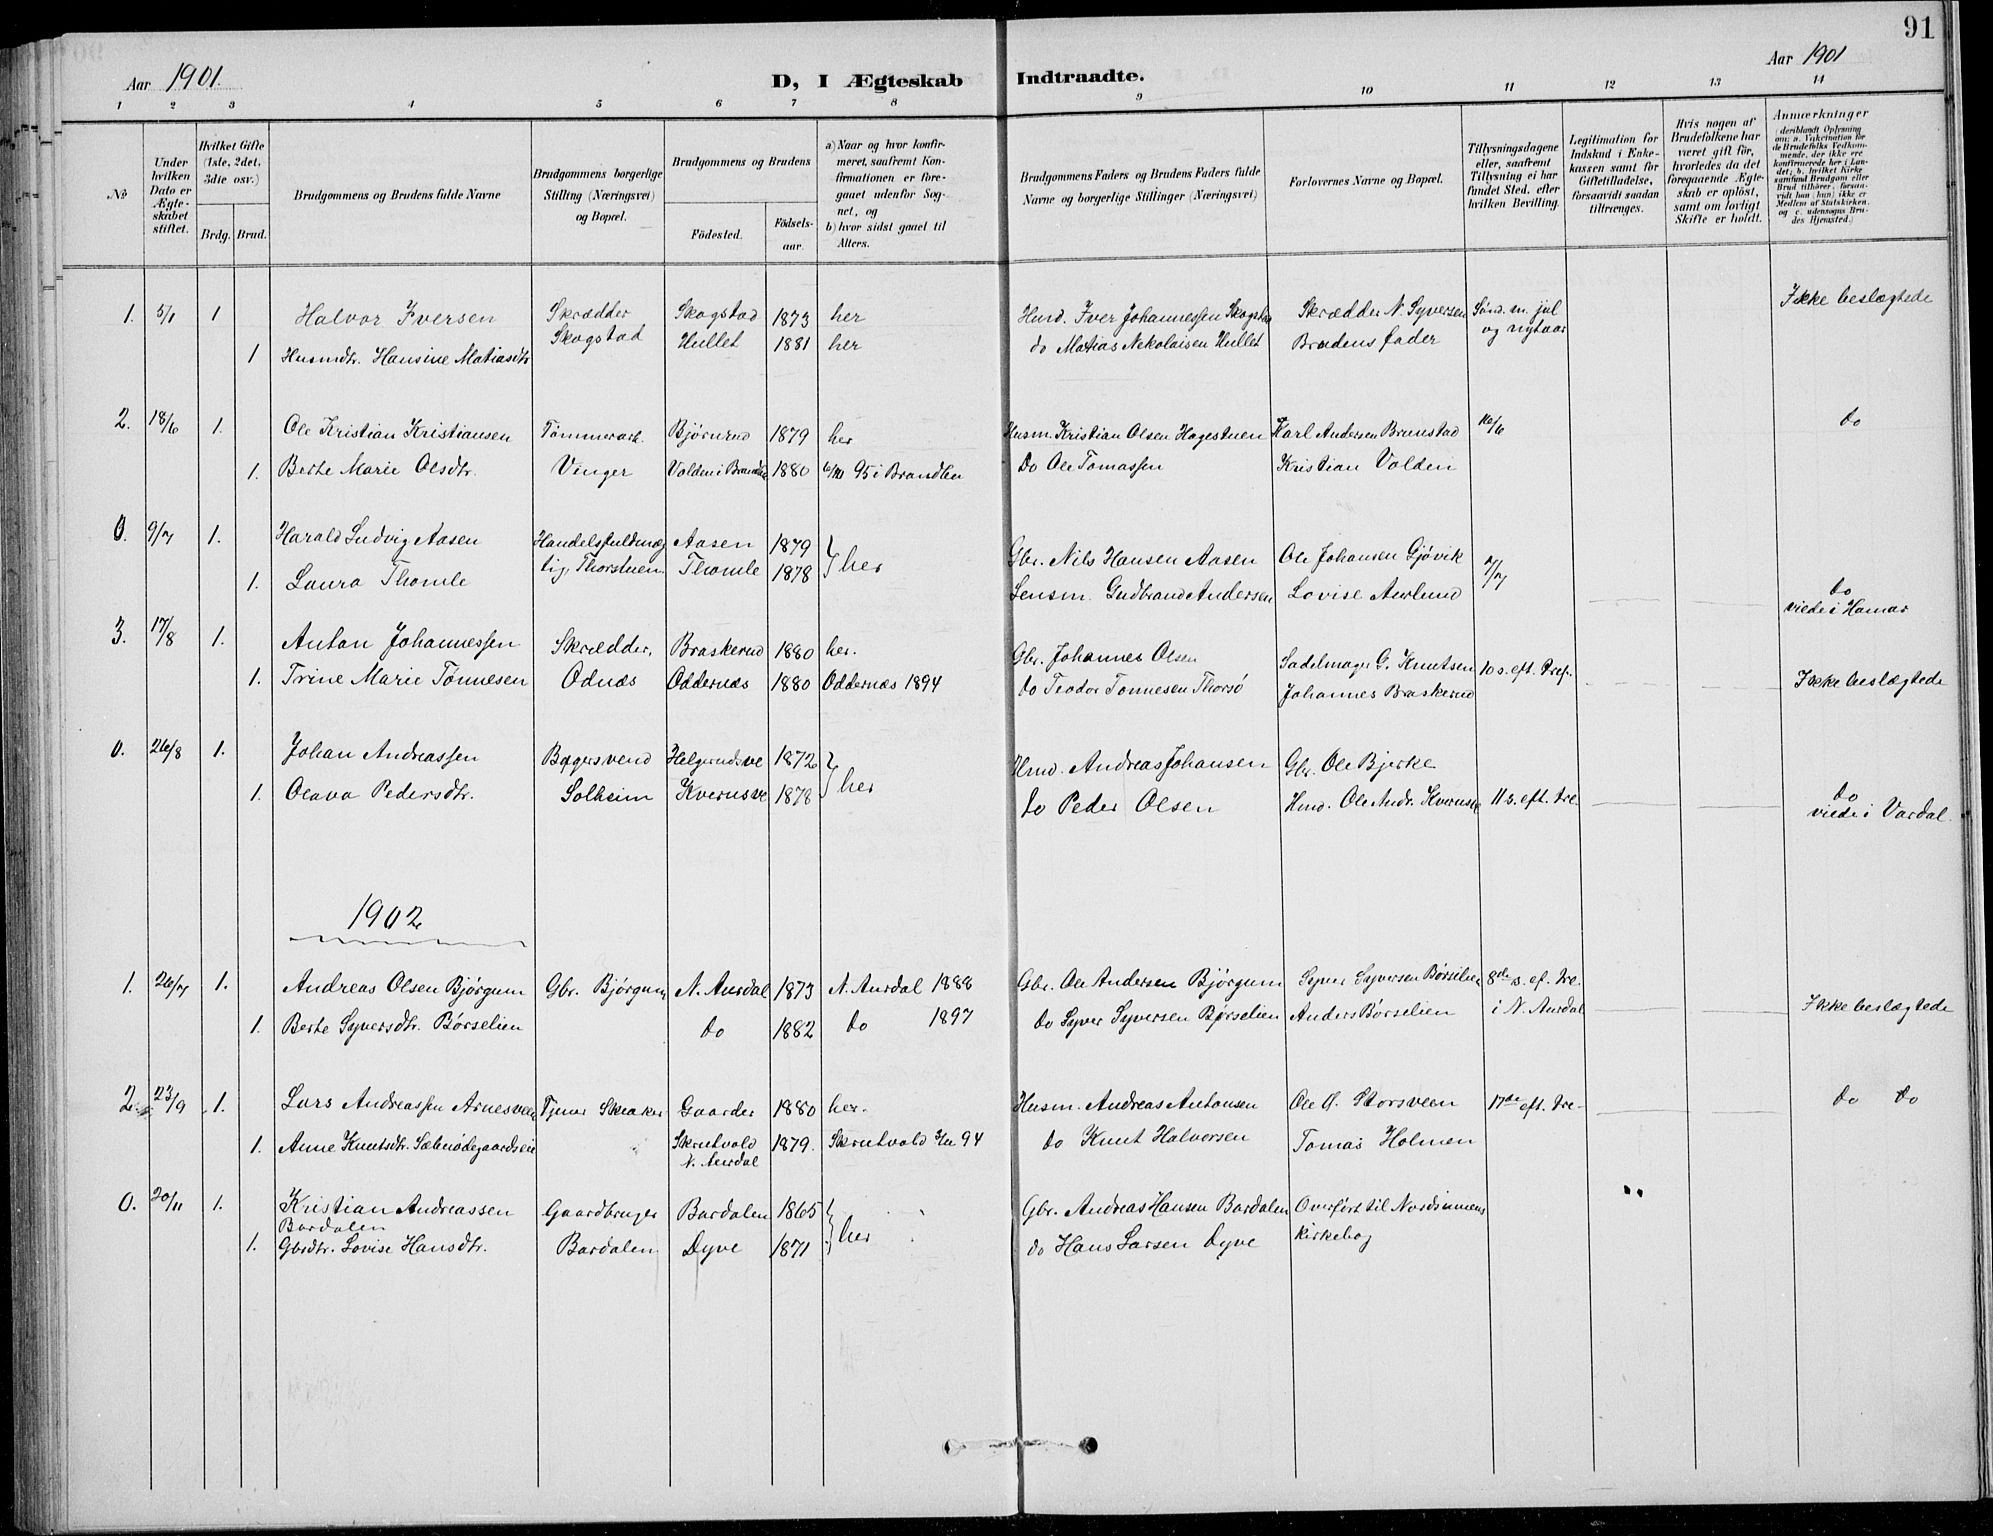 91
Aar 1901.
D, I Ægteskab Indtraadte.
Aar 1901
1 2 3 4 5 6 7 8 9 10 11 12 13 14
No
Under hvilken Dato er Ægteskabet stiftet.
Hvilket Gifte (1ste, 2det, 3die osv.)
Brdg. Brud.
Brudgommens og Brudens fulde Navne
Brudgommens borgerlige Stilling (Næringsvei) og Bopæl.
Brudgommens og Brudens
Födested.
Födselsaar.
a) Naar og hvor konfirmeret, saafremt Konfirmationen er foregaaet udenfor Sognet, og
b) hvor sidst gaaet til Alters.
Brudgommens Faders og Brudens Faders fulde Navne og borgerlige Stillinger (Næringsvei)
Forlovernes Navne og Bopæl.
Tillysningsdagene eller, saafremt Tillysning ei har fundet Sted, efter hvilken Bevilling.
Legitimation for Indskud i Enkekassen samt for Giftetilladelse, forsaavidt saadan tiltrænges.
Hvis nogen af Brudefolkene har været gift för, hvorledes da det foregaaende Ægteskab er oplöst, samt om lovligt Skifte er holdt.
Anmærkninger
(deriblandt Oplysning om: a. Vakcination for de Brudefolks Vedkommende, der ikke ere konfirmerede her i Landet; b. hvilket Kirkesamfund Brudgom eller Brud tilhörer, forsaavidt han (hun) ikke er Medlem af Statskirken, og c. udensogns Brudes Hjemsted.)
1. 5/1 1 Halvor Iversen Skrædder Skogstad 1873 her Hmd. Iver Johannessen Skogstad Skrædder N. Syversen Sønd. m. jul Ikke beslægtede
1 Husmdtr. Hansine Matiasdtr Skogstad Hullet 1881 her do Matias Nekolaisen Hullet Brudens fader og nytaar
2. 18/6 1. Ole Kristian Kristiansen Tømmerarb. Bjørnrud 1879 her Husm. Kristian Olsen Hagestuen Karl Andersen Brunstad 16/6 do
1. Berte Marie Olsdtr. Vinger Volden i Brandbu 1880 95 i Brandbu Do Ole Tomassen Kristian Volden
0. 9/7 1. Harald Ludvig Aasen Handelsfuldmæg Aasen 1879 her Gbr. Nils Hansen Aasen Ole Johansen Gjøvik 7/7
1. Laura Thomle tig, Thorstuen Thomle 1878 Lensm. Gudbrand Andersen Lovise Aurlund do
viede i Hamar
3. 17/8 1. Anton Johannessen Skrædder, Braskerud 1880 her. Gbr. Johannes Olsen Sadelmager G. Knutsen 10 s. eft. Tref.
1. Trine Marie Tønnesen Odnæs Oddernæs 1880 Oddernæs 1894 do Teodor Tønnesen Thorsø Johannes Braskerud Ikke beslægtede
0. 26/8 1. Johan Andreassen Bagersvend Helgerudsve 1872 her Hmd. Andreas Johansen Gbr. Ole Bjerke
1. Olava Pedersdtr. Solheim Kvernsve 1878 do Peder Olsen Hmd. Ole Andr. Kvernsve 11 s. eft. tre do
viede i Vardal.
1902
1. 26/7 1. Andreas Olsen Bjørgum Gbr. Bjørgum N. Aurdal 1873 N. Aurdal 1888 Gbr. Ole Andersen Bjørgum Syver Syversen Børselien 8de s. ef. tre
1. Berte Syversdtr. Børselien do 1882 do 1897 do Syver Syversen Børselien Anders Børselien i N. Aurdal Ikke beslægtede
2. 23/9 1. Lars Andreassen Arnesveen Tjener Skiaker Gaarder 1880 her. Husm. Andreas Antonsen Ole O. Storsveen 17de eft. tre do do
1. Anne Knutsdtr. Sæbnødegaardseie Skrutvold N. Aurdal 1879. Skrutvold 94 do Knut Halvorsen Tomas Holmen
0. 20/11 1. Kristian Andreassen Bardalen Gaardbruger Bardalen 1865 her Gbr. Andreas Hansen Bardalen Overført til Nordsinnens
1. Gbrdtr. Lovise Hansdtr. Bardalen Dyve 1871 do Hans Larsen Dyve kirkebog